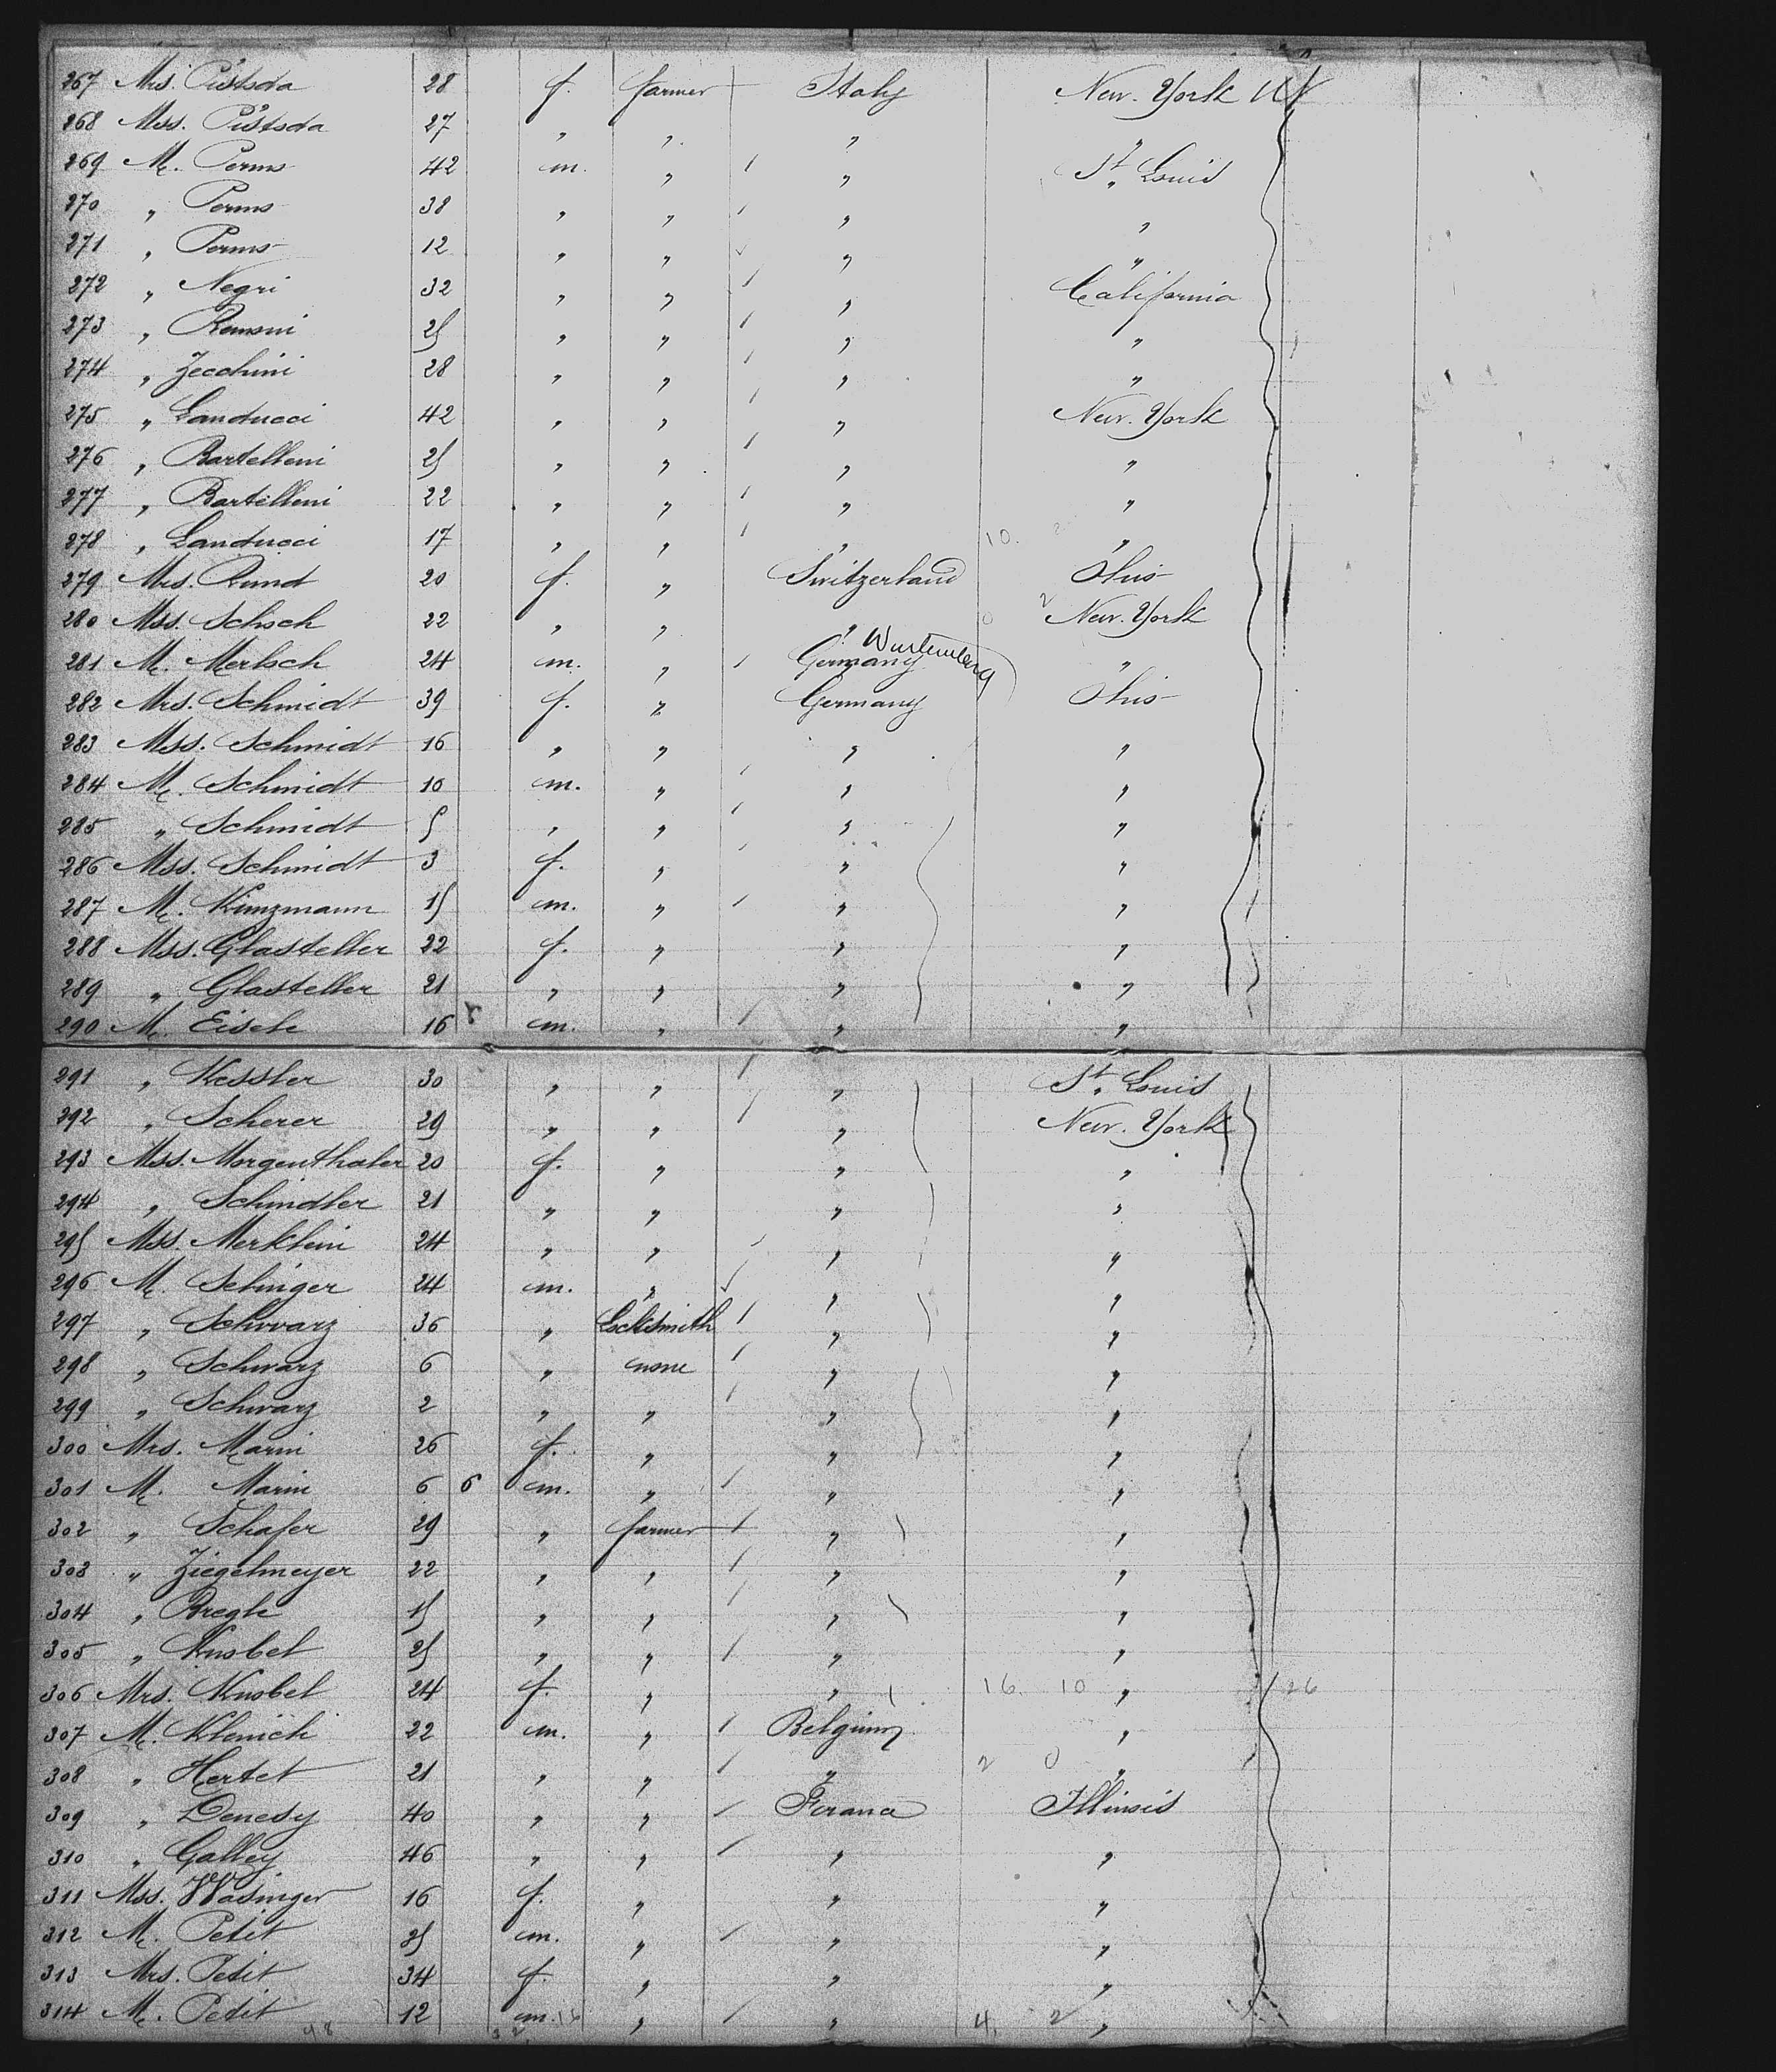 267 Mrs. Pistsda 28 f. farmer Italy New. York
268 Mss. Pistsda 27 " " " "
269 M. Perms 42 m. " " St. Louis
270 " Perms 38 " " " "
271 " Perms 12 " " " "
272 " Negri 32 " " " California
273 " Ramsini 25 " " " "
274 " Zecchini 28 " " " "
275 " Landucci 42 " " " New. York
276 " Bartelleni 25 " " " "
277 " Bartelleni 22 " " " "
278 " Landucci 17 " " " 10. 2 "
279 Mrs. Rund 20 f. " Switzerland Ohio
280 Mss. Schoch 22 " " " 0 2 New. York
281 M. Mertsch 24 m. " Germany Wurtemberg "
282 Mrs. Schmidt 39 f. " Germany Ohio
283 Mss. Schmidt 16 " " " "
284 M. Schmidt 10 m. " " "
285 " Schmidt 5 " " " "
286 Mss. Schmidt 3 f. " " "
287 M. Kunzmann 15 m. " " "
288 Mss. Glasteller 22 f. " " "
289 " Glasteller 21 " " " "
290 M. Eisele 16 m. " " "
291 " Kessler 30 " " " St. Louis
292 " Scherer 29 " " " New. York
293 Mss. Morgenthaler 20 f. " " "
294 " Schindler 21 " " " "
295 Mss. Merklein 24 " " " "
296 M. Sehinger 24 m. " " "
297 " Schwarz 36 " Locksmith " "
298 " Schwarz 6 " none " "
299 " Schwarz 2 " " " "
300 Mrs. Marin 26 f. " " "
301 M. Marin 6 6 m. " " "
302 " Schafer 29 " farmer " "
303 " Ziegelmeyer 22 " " " "
304 " Bregle 15 " " " "
305 " Knobel 25 " " " "
306 Mrs. Knobel 24 f. " " 16. 10 " 26
307 M. Klenich 22 m. " Belgium "
308 " Hertet 21 " " " 2 0 "
309 " Denesy 40 " " France Illinois
310 " Galley 46 " " " "
311 Mss. Wasinger 16 f. " " "
312 M. Petit 35 m. " " "
313 Mrs. Petit 34 f. " " "
314 M. Petit 12 m. 16 " " 4. 2 "
98 32